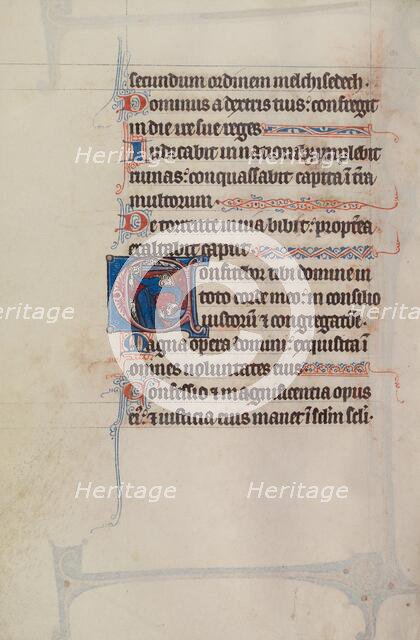 secundum ordinem melchisedech.
Dominus a dextris tuis: confregit
in die ire sue reges
Iudicabit in nationibus implebit
ruinas: conquassabit capita i tra
multorum.
De torrente in uia bibit: propterea
exaltabit caput
Confitebor tibi domine in
toto corde meo: in consilio
iustorum & congregatione.
Magna opera domini: exquisita i
omnes uoluntates eius
Confessio & magnificentia opus
ei: & iusticia eius manet i sclm scli.
Heritage Heritage
Heritage Heritage
Heritage Heritage